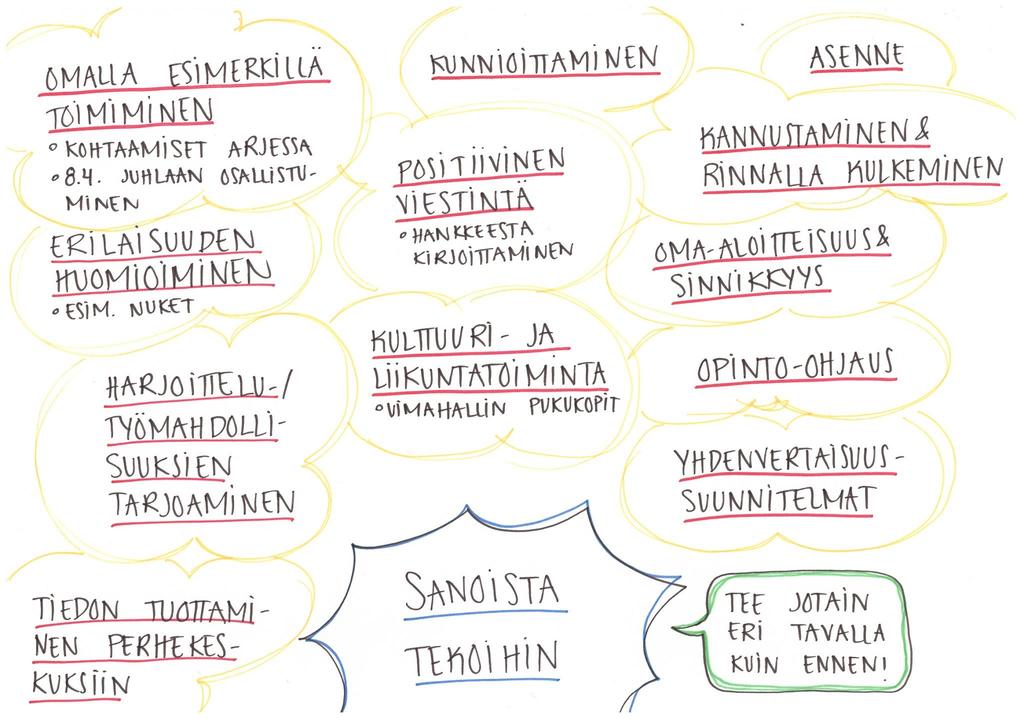 OMALLA ESIMERKILLÄ
TOIMIMINEN
° KOHTAAMISET ARJESSA
° 8.4. JUHLAAN OSALLISTU-
MINEN
KUNNIOITTAMINEN
ASENNE
POSITIIVINEN
VIESTINTÄ
° HANKKEESTA
KIRJOITTAMINEN
KANNUSTAMINEN &
RINNALLA KULKEMINEN
ERILAISUUDEN
HUOMIOIMINEN
° ESIM. NUKET
OMA-ALOITTEISUUS &
SINNIKKYYS
HARJOITTELU-/
TYÖMAHDOLLI-
SUUKSIEN
TARJOAMINEN
KULTTUURI- JA
LIIKUNTATOIMINTA
° VIMAHALLIN PUKUKOPIT
OPINTO-OHJAUS
YHDENVERTAISUUS-
SUUNNITELMAT
TIEDON TUOTTAMI-
NEN PERHEKES-
KUKSIIN
SANOISTA
TEKOIHIN
TEE JOTAIN
ERI TAVALLA
KUIN ENNEN!